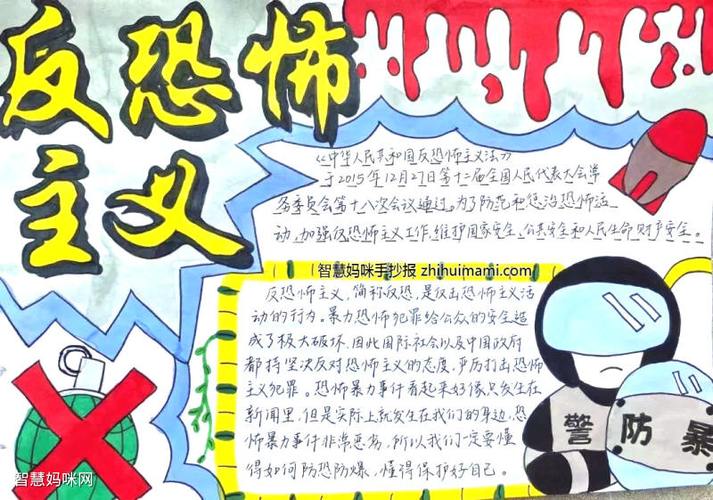 反恐怖
主义
《中华人民共和国反恐怖主义法》
于2015年12月27日第十二届全国人民代表大会常
务委员会第十八次会议通过。为了防范和惩治恐怖活
动，加强反恐怖主义工作，维护国家安全、公共安全和人民生命财产安全。
智慧妈咪手抄报 zhihuimami.com
反恐怖主义，简称反恐，是反击恐怖主义活
动的行为。暴力恐怖犯罪给公众的安全造
成了极大破坏，因此国际社会以及中国政府
都持坚决反对恐怖主义的态度，严厉打击恐怖
主义犯罪。恐怖暴力事件看起来好像只发生在
新闻里，但是实际上就发生在我们的身边，恐
怖暴力事件非常恶劣，所以我们一定要懂
得如何防恐防爆，懂得保护好自己。
警
防暴
智慧妈咪网